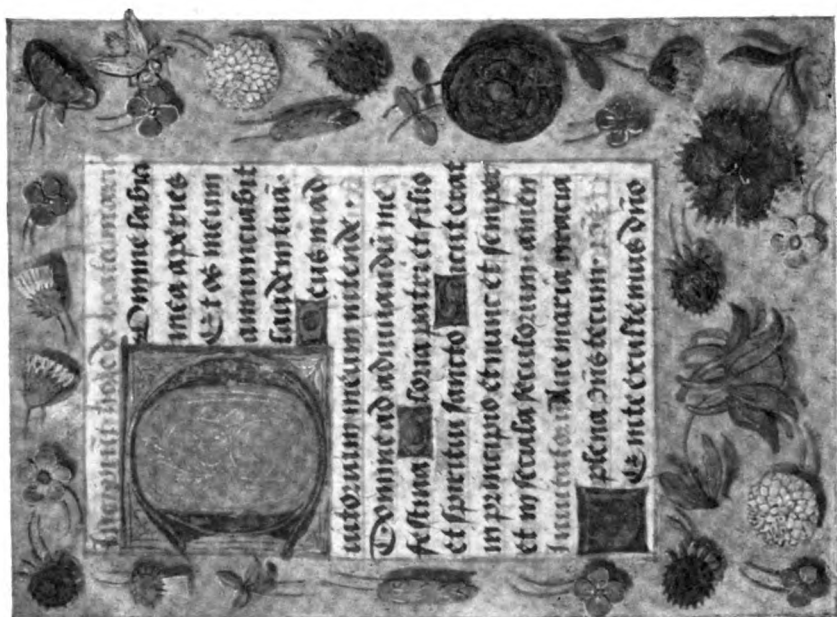 hore de
Domine labia
mea aperies
Et os meum
annunciabit
laudem tuã.
Deus in ad
iutorium meum intende.
Domine ad adiuuandũ me
festina Gloria patri et filio
et spiritui sancto Sicut erat
in principio et nunc et semper
et in secula seculorum amen
Aue maria gracia
plena dñs tecum.
VEnite exultemus dño